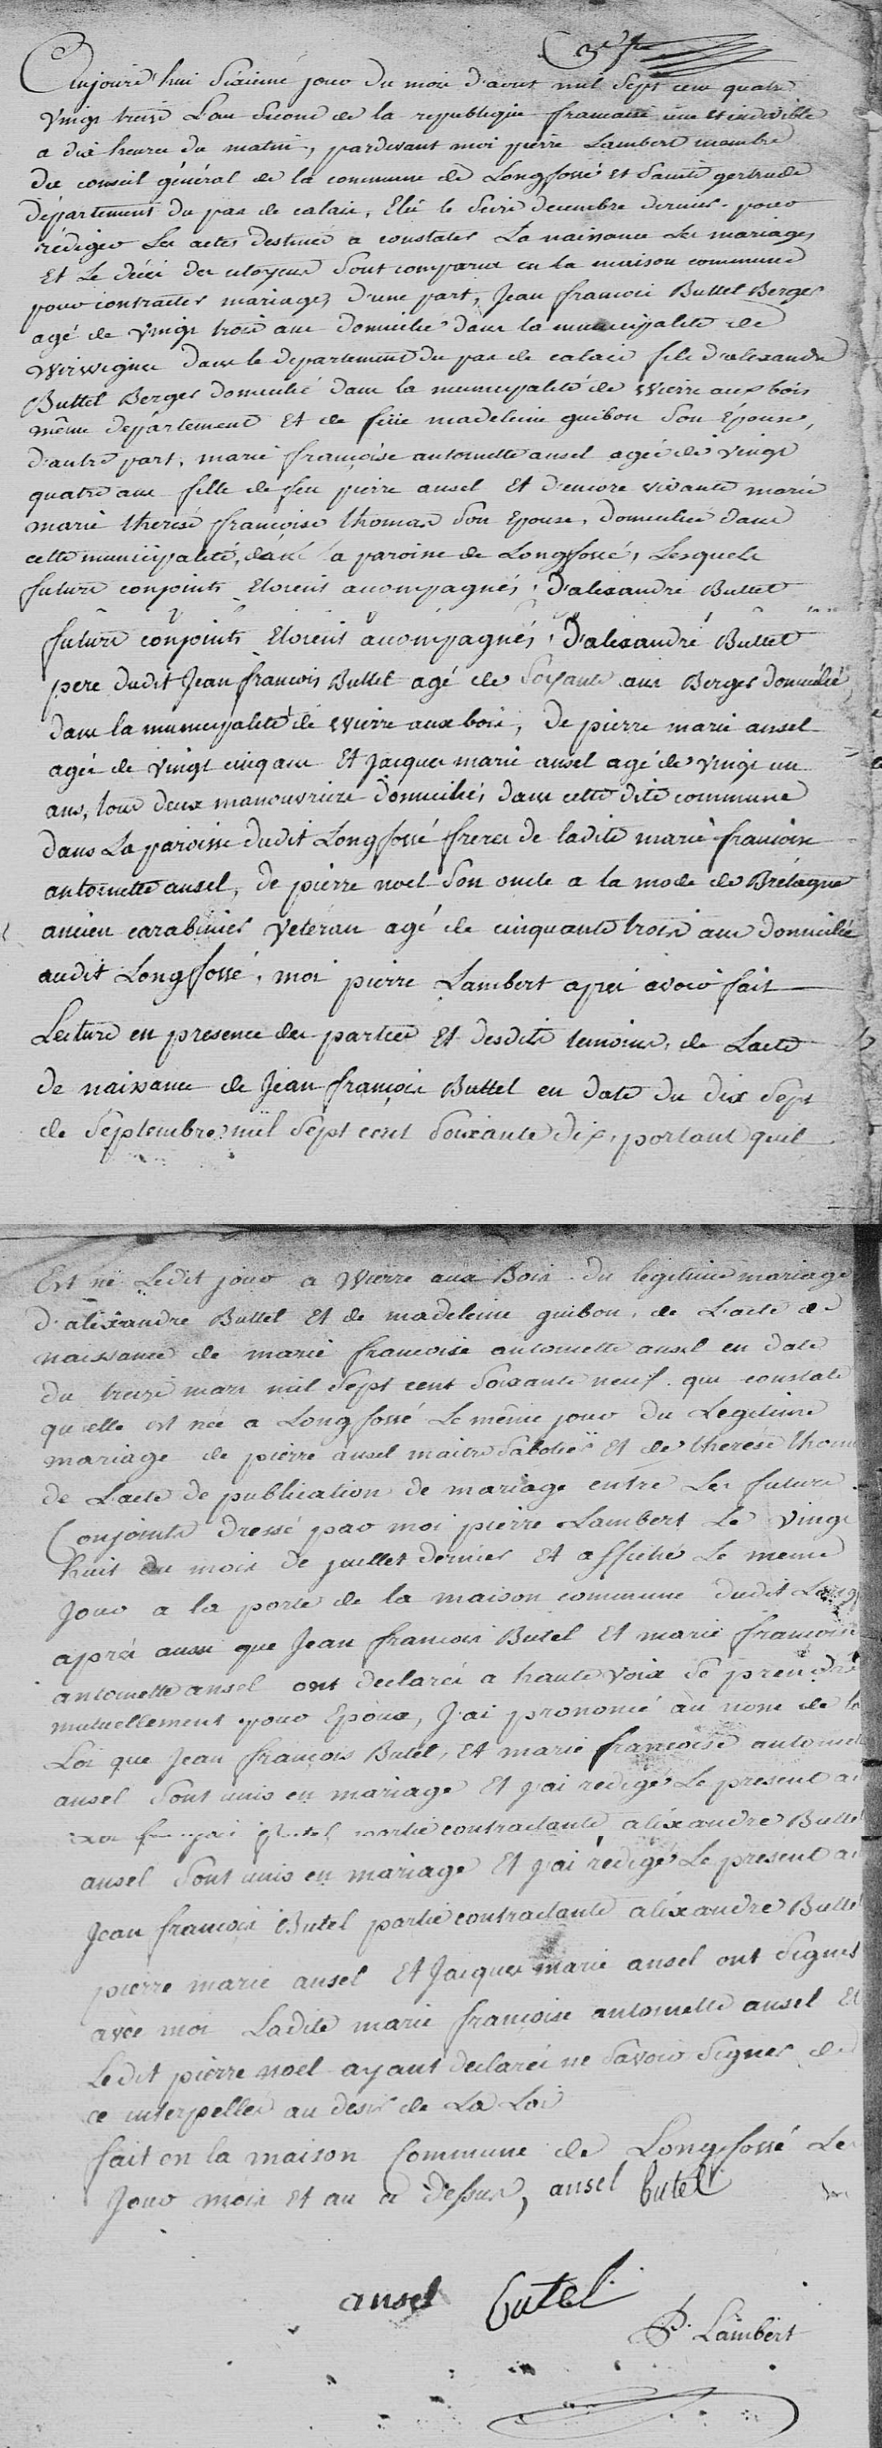 3e f
Aujourd'hui sixieme jour du mois d'aout mil sept cent quatre
vingt treize L'an second de la republique francaise une et indivisible
a dix heures du matin, pardevant moi pierre Lambert membre
du conseil général de la commune de Longfossé et Sainte gertrude
département du pas de calais, Elu le seize decembre dernier pour
rédiger Les actes destinés a constater La naissance Les mariages
Et Le décès des citoyens Sont comparus en la maison commune
pour contracter mariage, d'une part, Jean francois Buttel Berger
agé de vingt trois ans domicilié dans la municipalité de
Wirwignes dans le departement du pas de calais fils d'alexandre
Buttel Berger domicilié dans la municipalité de Wierre aux bois
même département Et de feüe madeleine guibon son Epouse,
d'autre part, marie françoise antoinette ansel agée de vingt
quatre ans fille de feu pierre ansel Et d'encore vivante marie
marie therese françoise thomas son Epouse, domiciliée dans
cette municipalité, dans la paroisse de Longfossé, Lesquels
futurs conjoints Etoient acompagnés, D'alexandre Buttel
futurs conjoints Etoient acompagnés, D'alexandré Buttel
pere dudit Jean francois Buttel agé de soixante ans Berger domicilié
dans la municipalité de wierre aux bois, de pierre marie ansel
agée de vingt cinq ans Et Jacques marie ansel agé de vingt un
ans, tous deux manouvriers domiciliés dans cette dite commune
dans La paroisse dudit Longfossé freres de ladite marie francoise
antoinette ansel, de pierre noel son oncle a la mode de Bretagne
ancien carabinier veteran agé de cinquante trois ans domicilié
audit Longfossé, moi pierre Lambert après avoir fait
Lecture en presence des parties Et desdits temoins, de Lacte
de naissance de Jean françois Buttel en date du dix sept
de septembre mil sept cent soixante dix, portant quil
Est né Ledit jour a Wierre aux Bois du legitime mariage
d'aléxandre Buttel Et de madeleine guibon, de L'acte de
naissance de marie francoise antoinette ansel en date
du treize mars mil sept cent soixante neuf qui constate
qu'elle est née a Longfossé Le même jour du Legitime
mariage de pierre ansel maitre sabotier Et de therése thom
de L'acte de publication de mariage entre Les futurs
Conjoints dressé par moi pierre Lambert Le vingt
huit du mois de juillet dernier Et affiché Le meme
Jour a la porte de la maison commune dudit Long
après aussi que Jean francois Butel Et marie francoise
antoinette ansel ont declaréi a haute voix se prendre
mutuellement pour Epoux, J'ai prononcé au nom de la
Loi que Jean françois Butel, Et marie francoise antoinet
ansel sont unis en mariage Et j'ai redigé Le present a
partie contractante aléxandre Buttel
ansel sont unis en mariage Et j'ai rédigé Le present a
Jean francois Butel partie contractante aléxandre Buttel
pierre marie ansel Et Jacques marie ansel ont signés
avec moi Ladite marie françoise antoinette ansel Et
Ledit pierre noel ayant declaréi ne savoir signer de
ce interpellés au desir de La Loi
fait en la maison Commune de Longfossé Le
Jour mois et an ci dessus, ansel butel
ansel butel
P. Lambert